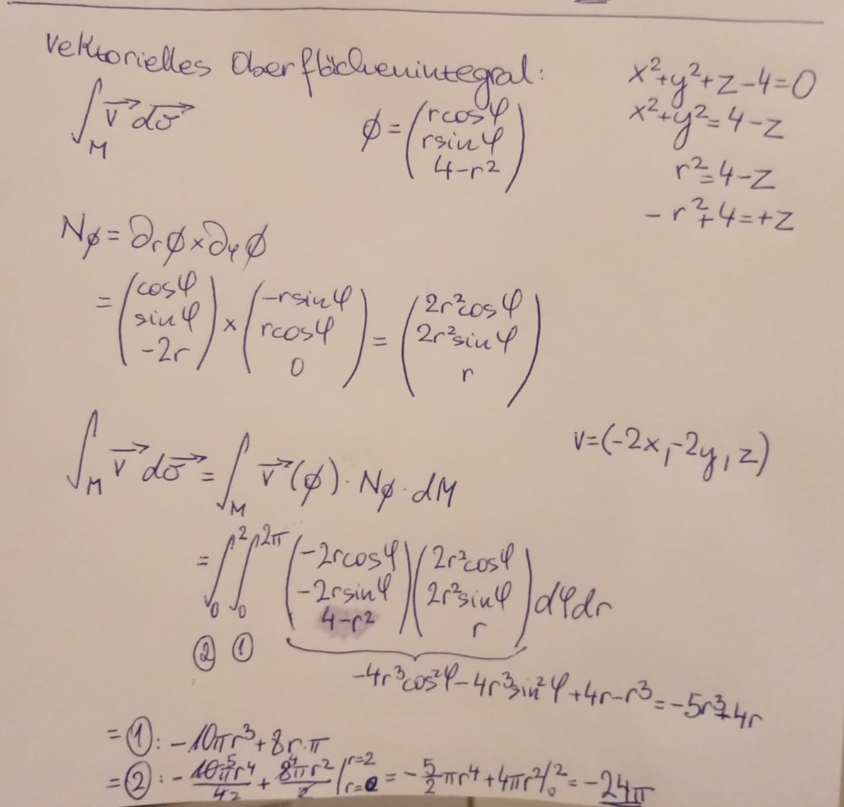 Vektorielles Oberflächenintegral:
∫_M v⃗ dσ⃗
ϕ = (rcosφ, rsinφ, 4-r²)
x²+y²+z-4=0
x²+y²=4-z
r²=4-z
-r²+4=+z
N_ϕ = ∂_rϕ × ∂_φϕ
= (cosφ, sinφ, -2r) × (-rsinφ, rcosφ, 0) = (2r²cosφ, 2r²sinφ, r)
v=(-2x,-2y,z)
∫_M v⃗ dσ⃗ = ∫_M v⃗(ϕ)·N_ϕ·dM
= ∫_0^2 ∫_0^2π (-2rcosφ, -2rsinφ, 4-r²) (2r²cosφ, 2r²sinφ, r) dφdr
② ①
-4r³cos²φ-4r³sin²φ+4r-r³=-5r³+4r
= ①: -10πr³+8r·π
= ②: -10 5 πr⁴/4 2 + 8 4 πr²/2 |_{r=0}^{r=2} = -5/2 πr⁴+4πr²|_0^2 = -24π